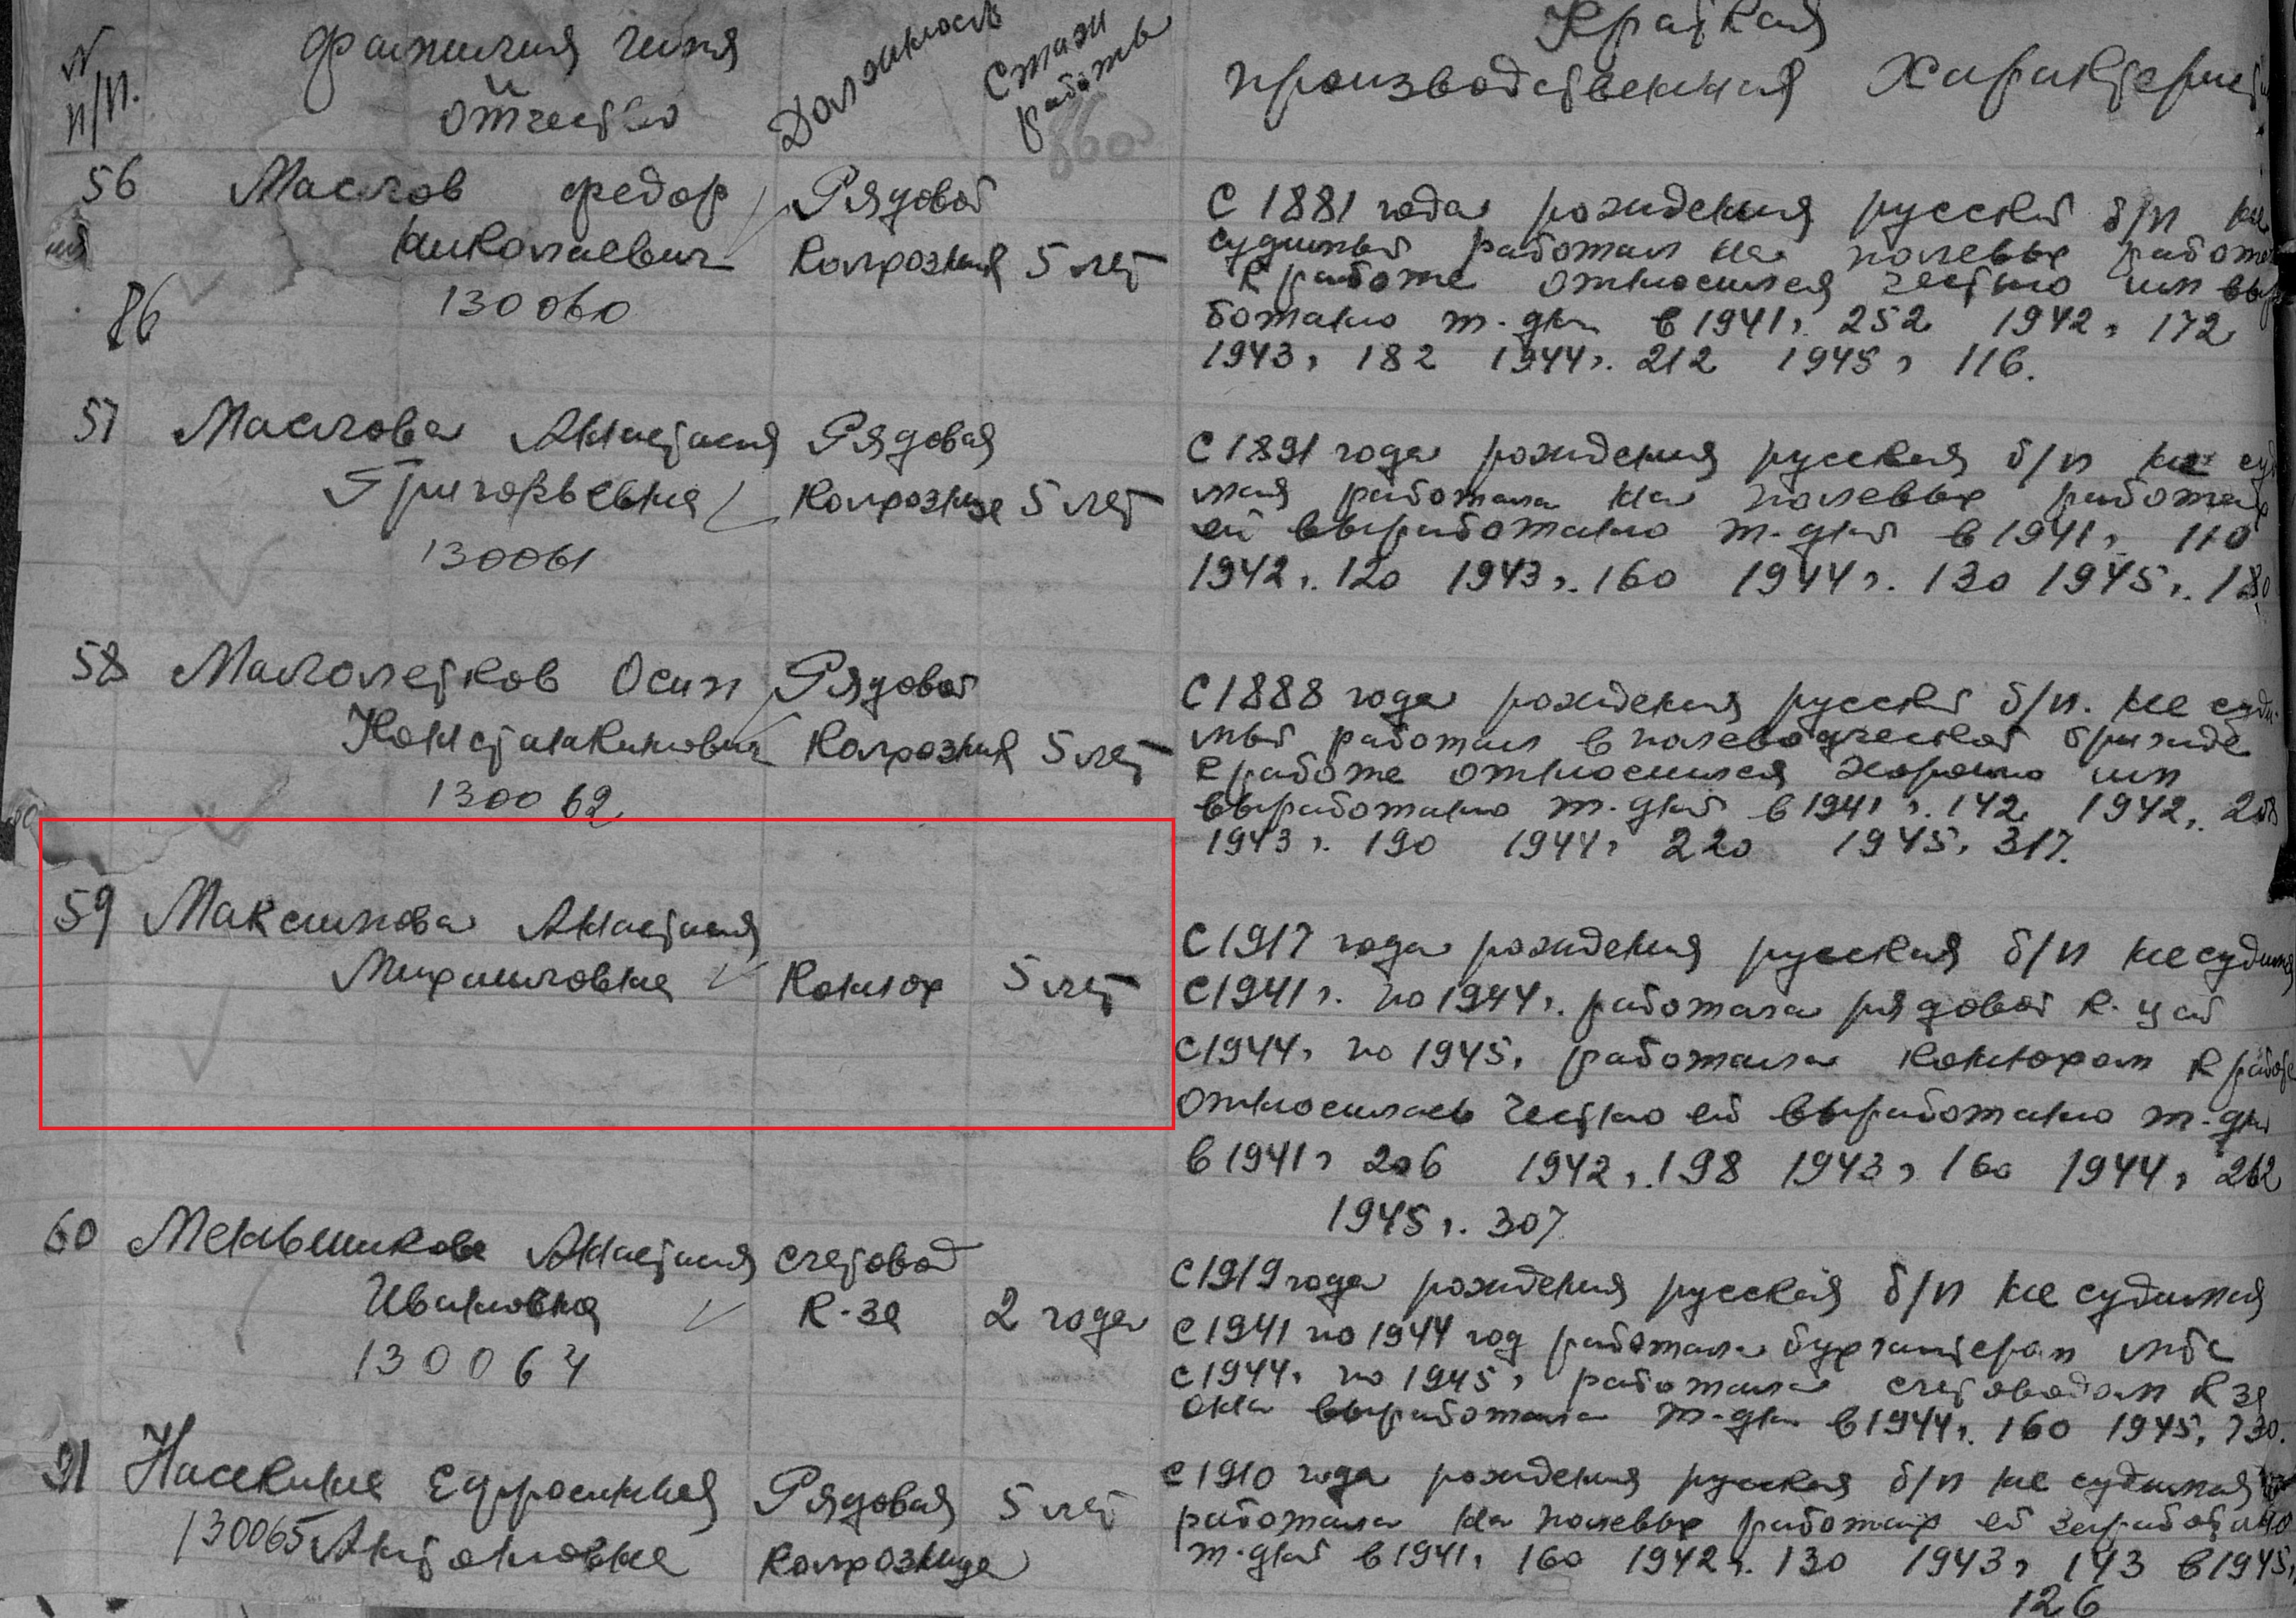 N п/п.
Фамилия имя
и
отчество
Должность
Стаж
работы
860
Краткая
производственная характерист
56 Маслов Федор Рядовой
Николаевич Колхозник 5 лет
130060
86
С 1881 года рождения русский б/п не
судимый работал на полевых работах
к работе относился честно им выр
ботано т-дн в 1941г. 252 1942г. 172
1943г 182 1944г. 212 1945г 116.
57 Маслова Анастасия Рядовая
Григорьевна Колхозница 5 лет
130061
С 1891 года рождения русская б/п не суд
мая работала на полевых работах
ей выработано т-дней в 1941г. 110
1942г. 120 1943г. 160 1944г. 130 1945г. 180
58 Малолетков Осип Рядовой
Константинович Колхозник 5 лет
130062
С 1888 года рождения русский б/п. не суди
мый работал в полеводческой бригаде
к работе относился хорошо им
выработано т-дней в 1941г. 142 1942г.
1943г. 190 1944г. 220 1945г. 317.
59 Максимова Анастасия
Михаиловна Конюх 5 лет
С 1917 года рождения русская б/п не судимая
С 1941г. по 1944г. работала рядовой к-цей
С 1944г по 1945г работала конюхом к работе
относилась честно ей выработано т-дн
в 1941г 206 1942г. 198 1943г 160 1944г 262
1945г. 307
60 Меньшикова Анастасия счетовод
Ивановна к-за 2 года
130064
С 1919 года рождения русская б/п не судимая
С 1941 по 1944 год работала бухгалтером
С 1944г по 1945г работала счетоводом к за
она выработала т-дн в 1944г. 160 1945г. 730.
91 Насекина Ефросиния Рядовая 5 лет
130065 Антоновна колхозница
С 1910 года рождения русская б/п не судимая
работала на полевых работах ей заработано
т-дней в 1941г. 160 1942г. 130 1943г 143 в 1945г
126